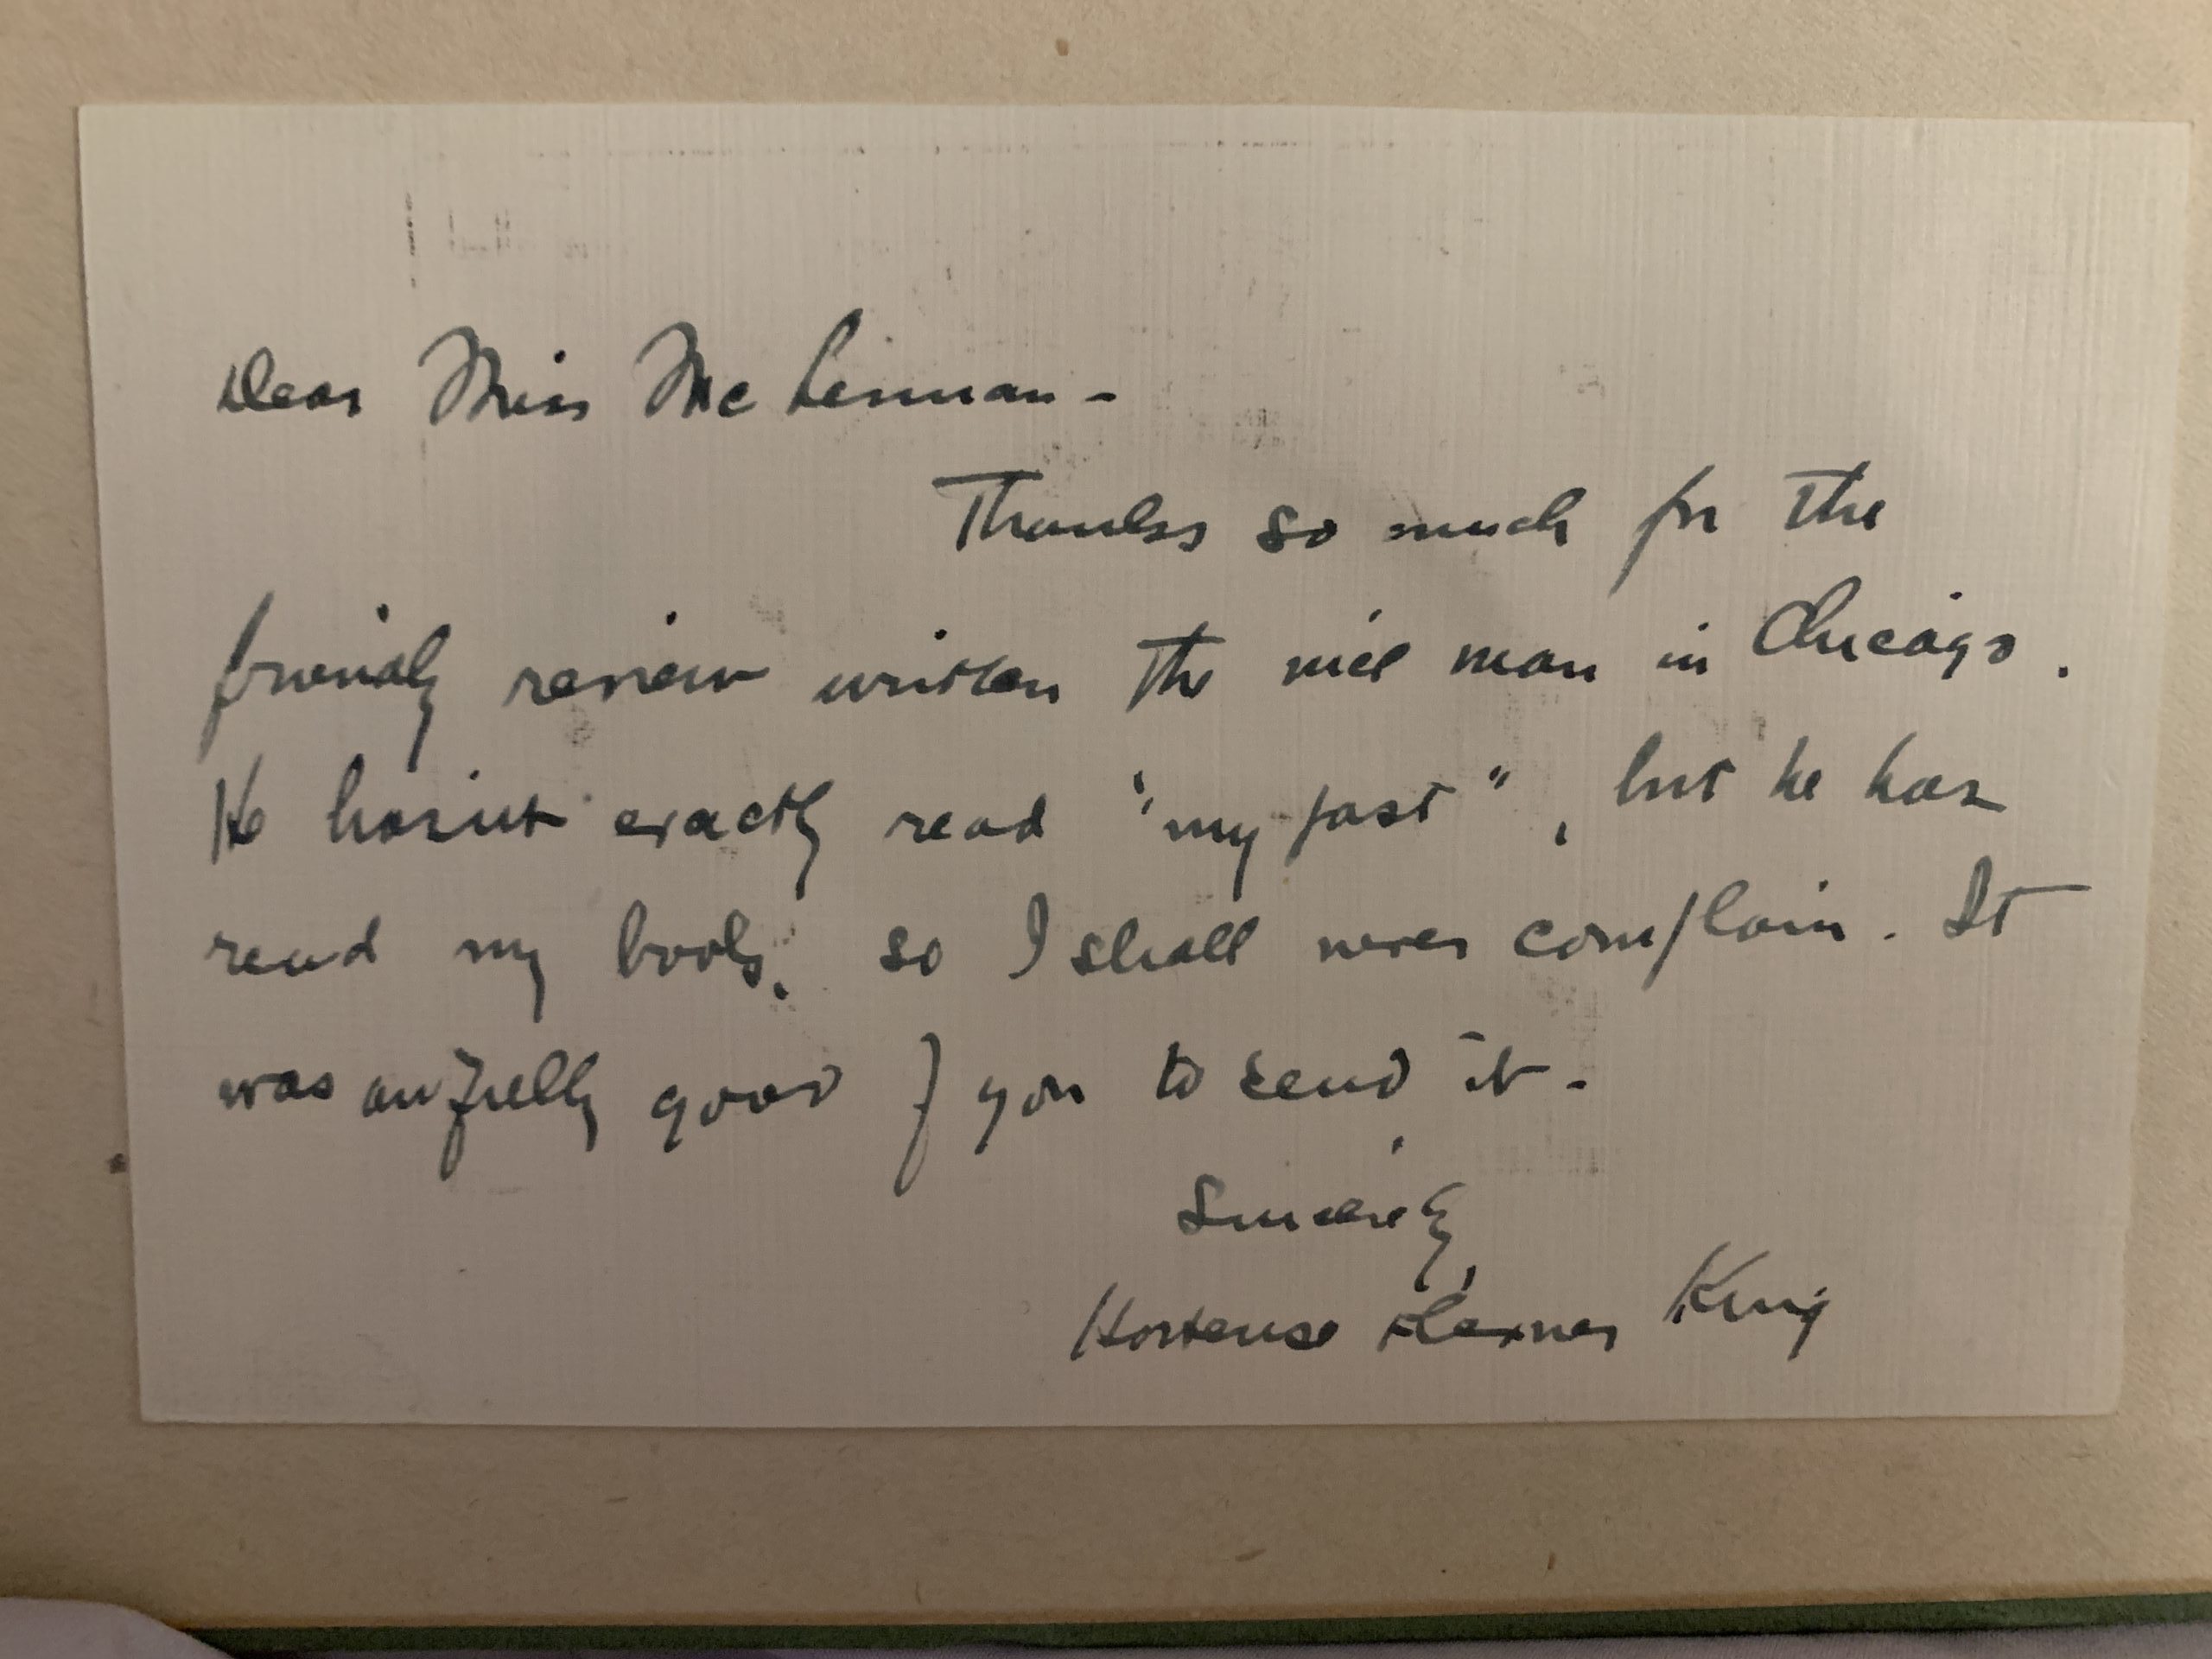 Dear Miss McLennan -
Thanks so much for the
friendly review written the nice man in Chicago.
He hasn't exactly read "my past", but he has
read my book, so I shall never complain. It
was awfully good of you to send it.
Sincerely,
Hortense Lexner King